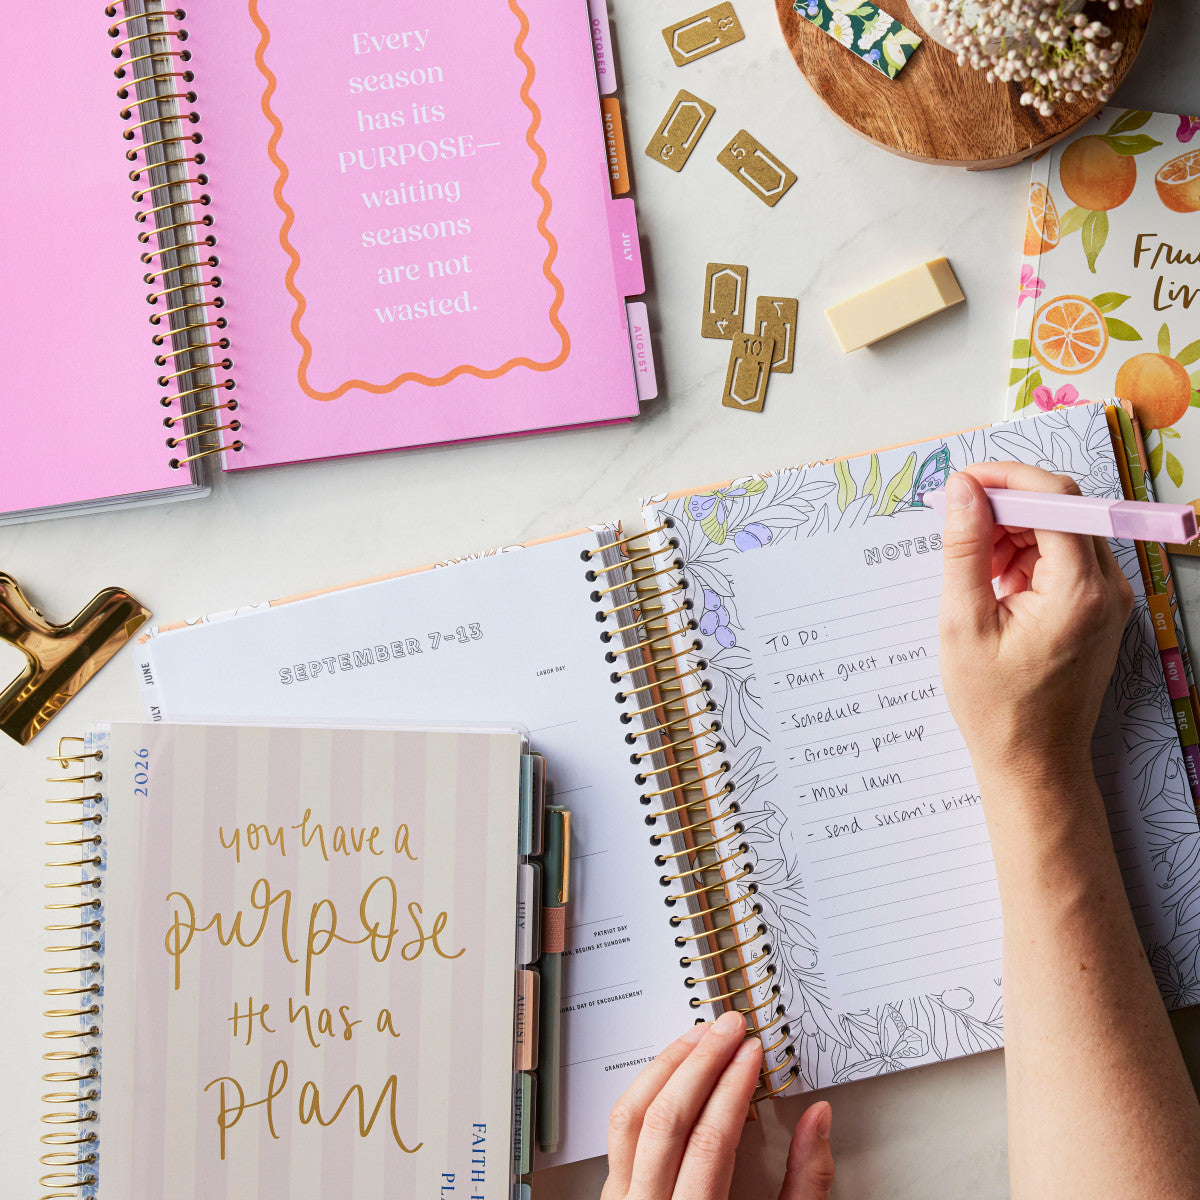 Every
season
has its
PURPOSE—
waiting
seasons
are not
wasted.
OCTOBER
NOVEMBER
JULY
AUGUST
8
5
4
7
10
SEPTEMBER 7-13
LABOR DAY
PATRIOT DAY
BEGINS AT SUNDOWN
DAY OF ENCOURAGEMENT
GRANDPARENTS DAY
JUNE
JULY
NOTES
TO DO:
- Paint guest room
- Schedule haircut
- Grocery pick up
- mow lawn
- send susan's birth
OCT
NOV
DEC
NOTES
2026
you have a
purpose
He has a
plan
JULY
AUGUST
SEPTEMBER